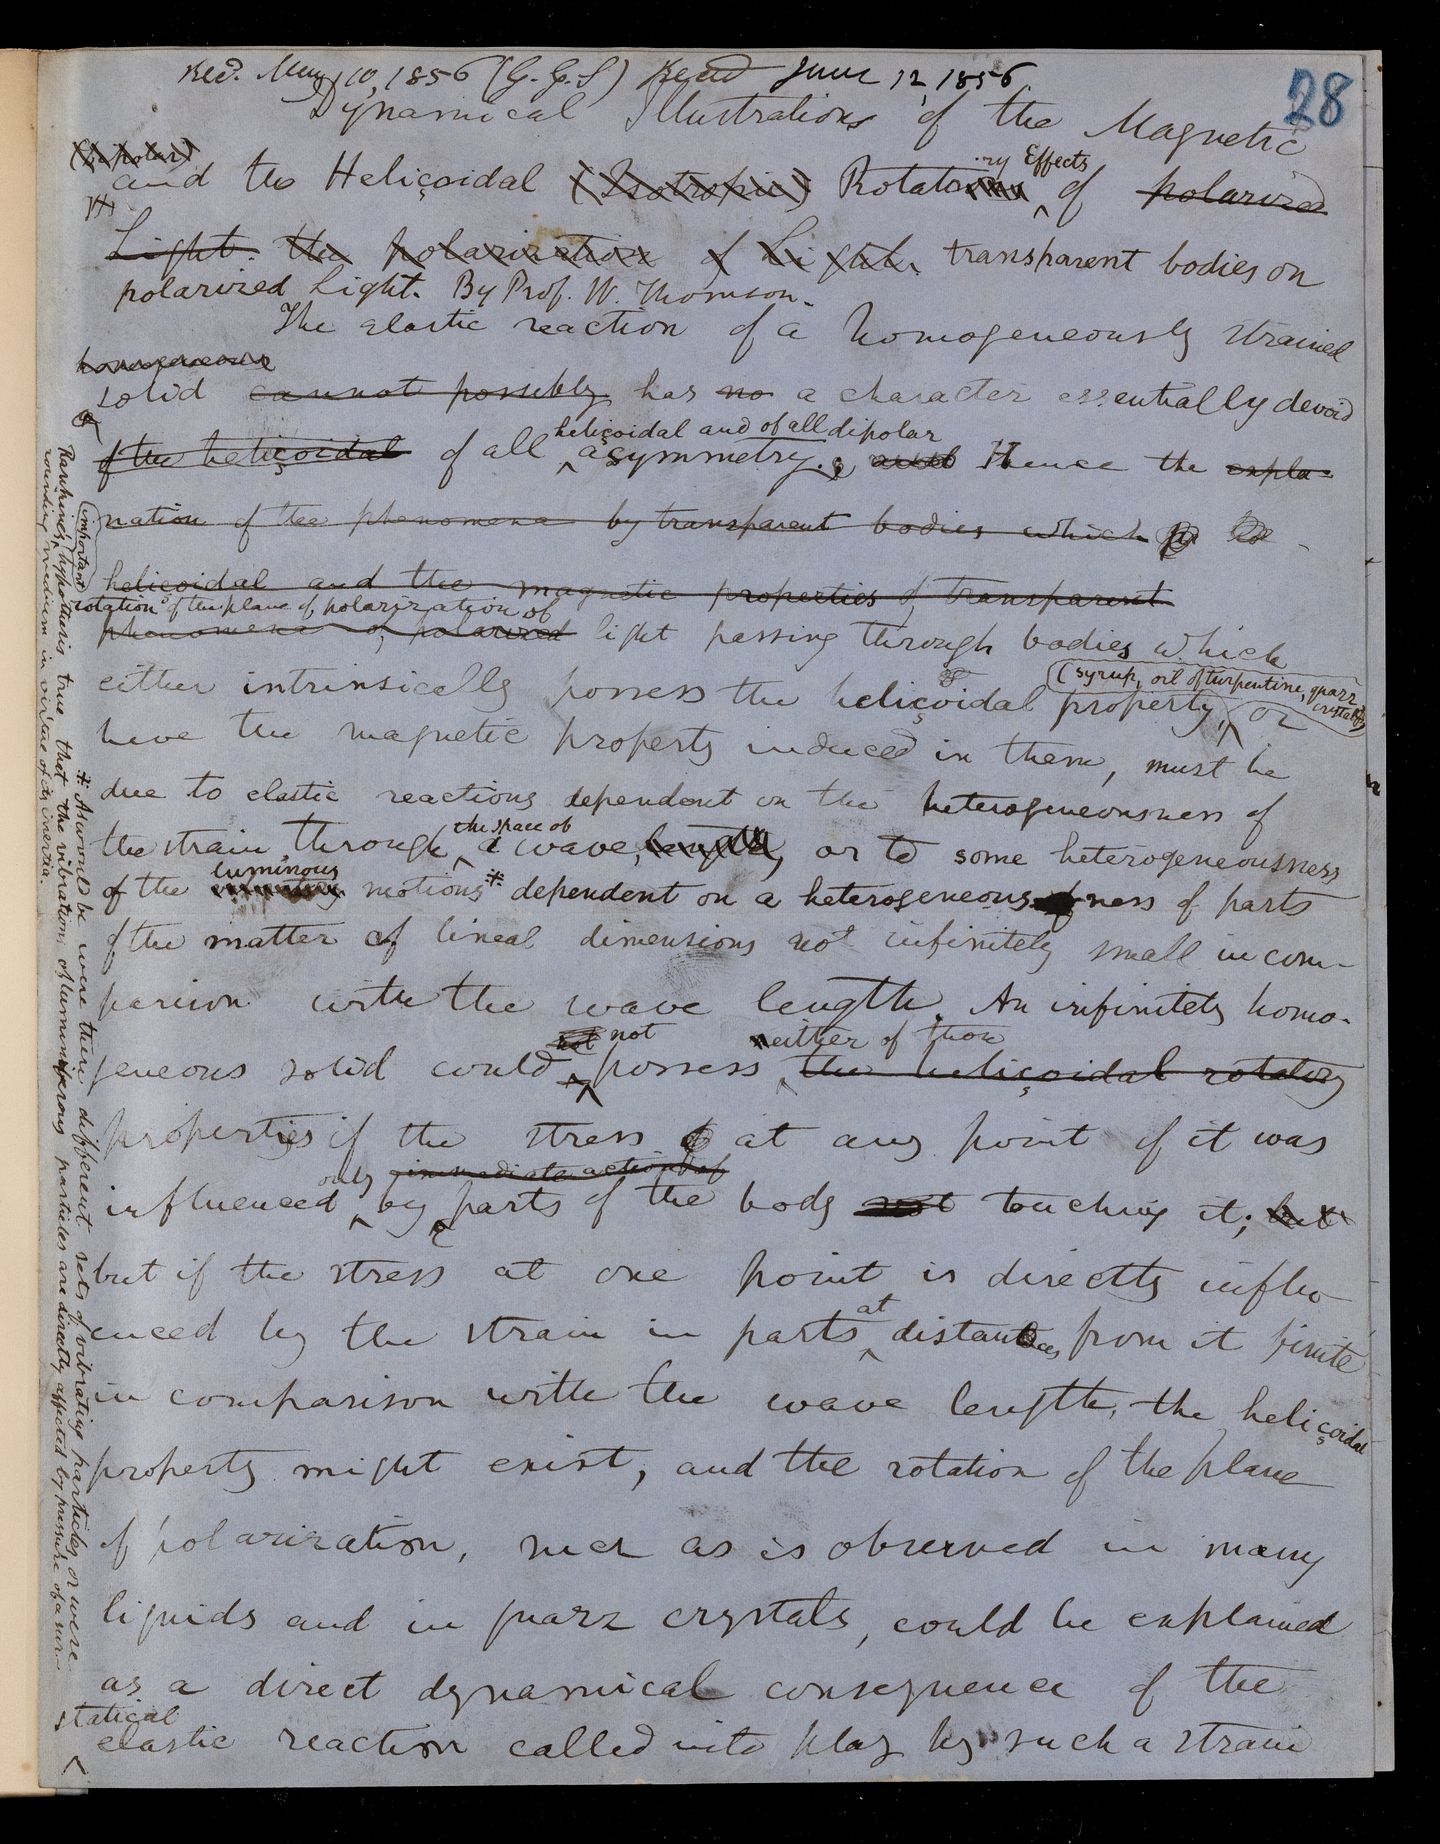 Rec.d May 10, 1856 (G.G.S) Read June 12, 1856
28
Dynamical Illustrations of the Magnetic
(Dipolar)
and the Heliçoidal (Isotropic) Rotatory Effects of polarized
Light. the polarization of Light. transparent bodies on
polarized Light. By Prof. W. Thomson.
The elastic reaction of a homogeneously strained
homogeneous
solid cannot possibly has no a character essentially devoid
of the heliçoidal of all heliçoidal and of all dipolar asymmetry. and Hence the expla-
nation of the phenomena by transparent bodies which
helicoidal and the magnetic properties of transparent
rotation of the plane of polarization of
phenomena of polarized light passing through bodies which
either intrinsically possess the heliçoidal property (syrup, oil of turpentine, quarz crystals), or
have the magnetic property induced in them, must be
due to elastic reactions dependent on the heterogeneousness of
the strain through the space of a wave, length, or to some heterogeneousness
of the luminous motions* dependent on a heterogeneousness of parts
of the matter of lineal dimensions not infinitely small in com-
parison with the wave length. An infinitely homo-
geneous solid could not not possess neither of those the heliçoidal rotatory
properties if the stress at any point of it was
influenced only by immediate action of parts of the body not touching it; but
but if the stress at one point is directly influ-
enced by the strain in parts at distances from it finite
in comparison with the wave length, the heliçoidal
property might exist, and the rotation of the plane
of polarization, such as is observed in many
liquids and in quarz crystals, could be explained
as a direct dynamical consequence of the
statical
elastic reaction called into play by such a strain
* As would be were there different sets of vibrating particles, or were
Rankine's important hypothesis true that the vibrations of luminiferous particles are directly affected by pressure of a sur-
rounding medium in virtue of its inertia.